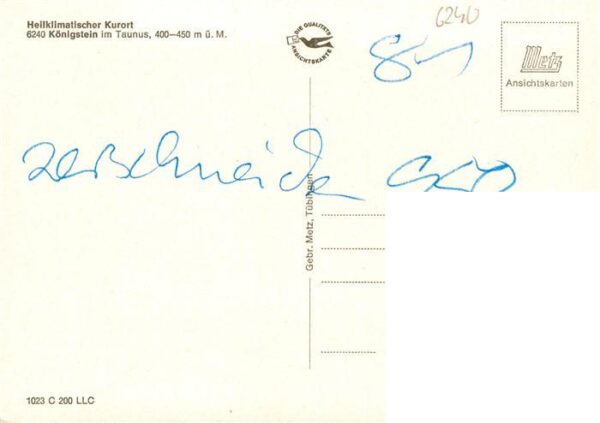 Heilklimatischer Kurort
6240 Königstein im Taunus, 400–450 m ü. M.
DIE QUALITÄTS
ANSICHTSKARTE
6240
Metz
Ansichtskarten
zerschneiden
Gebr. Metz, Tübingen
1023 C 200 LLC